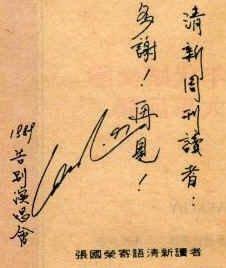 清新周刊讀者：
多謝！再見！
1989
告别演唱會
張國榮寄語清新讀者